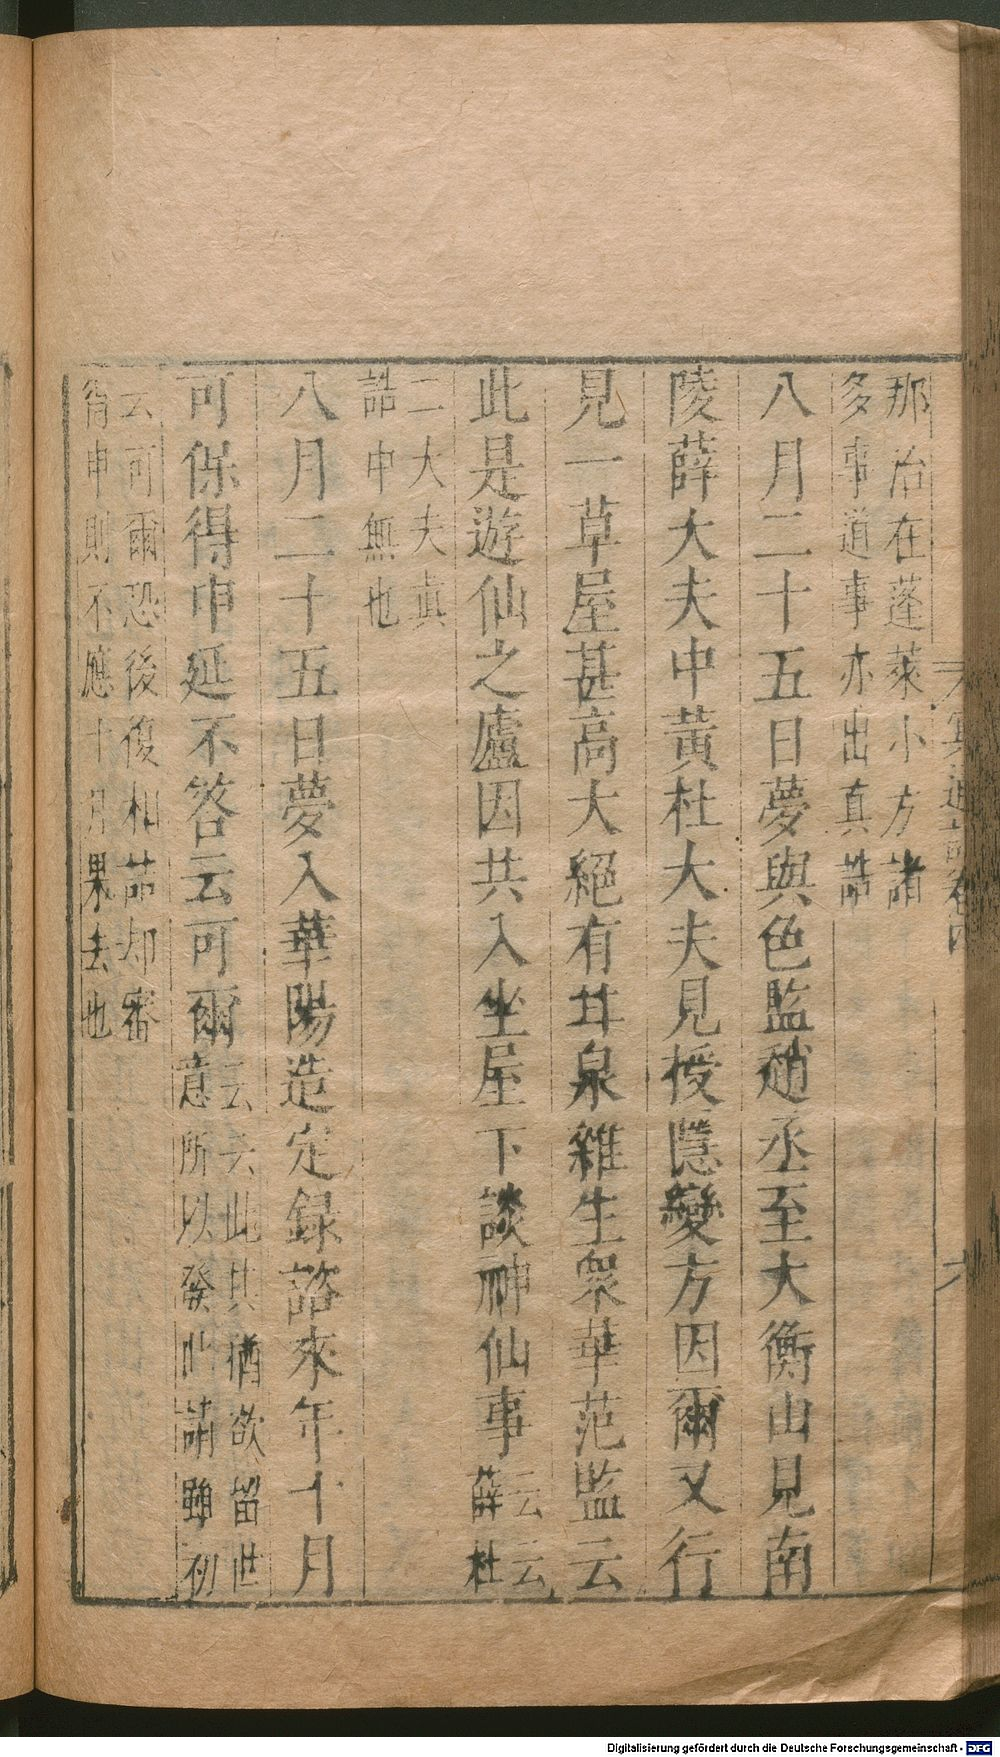 那治在蓬萊小方諸
多事道事亦出真誥
八月二十五日夢與色監趙丞至大衡山見南
陵薛大夫中黃杜大夫見授隱變方因爾又行
見一草屋甚高大絕有井泉雜生衆華范監云
此是遊仙之廬因共入坐屋下談神仙事云云
薛杜
二大夫真
誥中無也
八月二十五日夢入華陽造定録諮來年十月
可保得申延不答云可爾云去此其猶欲留世
意所以發此請雖初
云可爾恐後復相詰却審
肯申則不應十月果去也
冥通記卷四
六
Digitalisierung gefördert durch die Deutsche Forschungsgemeinschaft - DFG